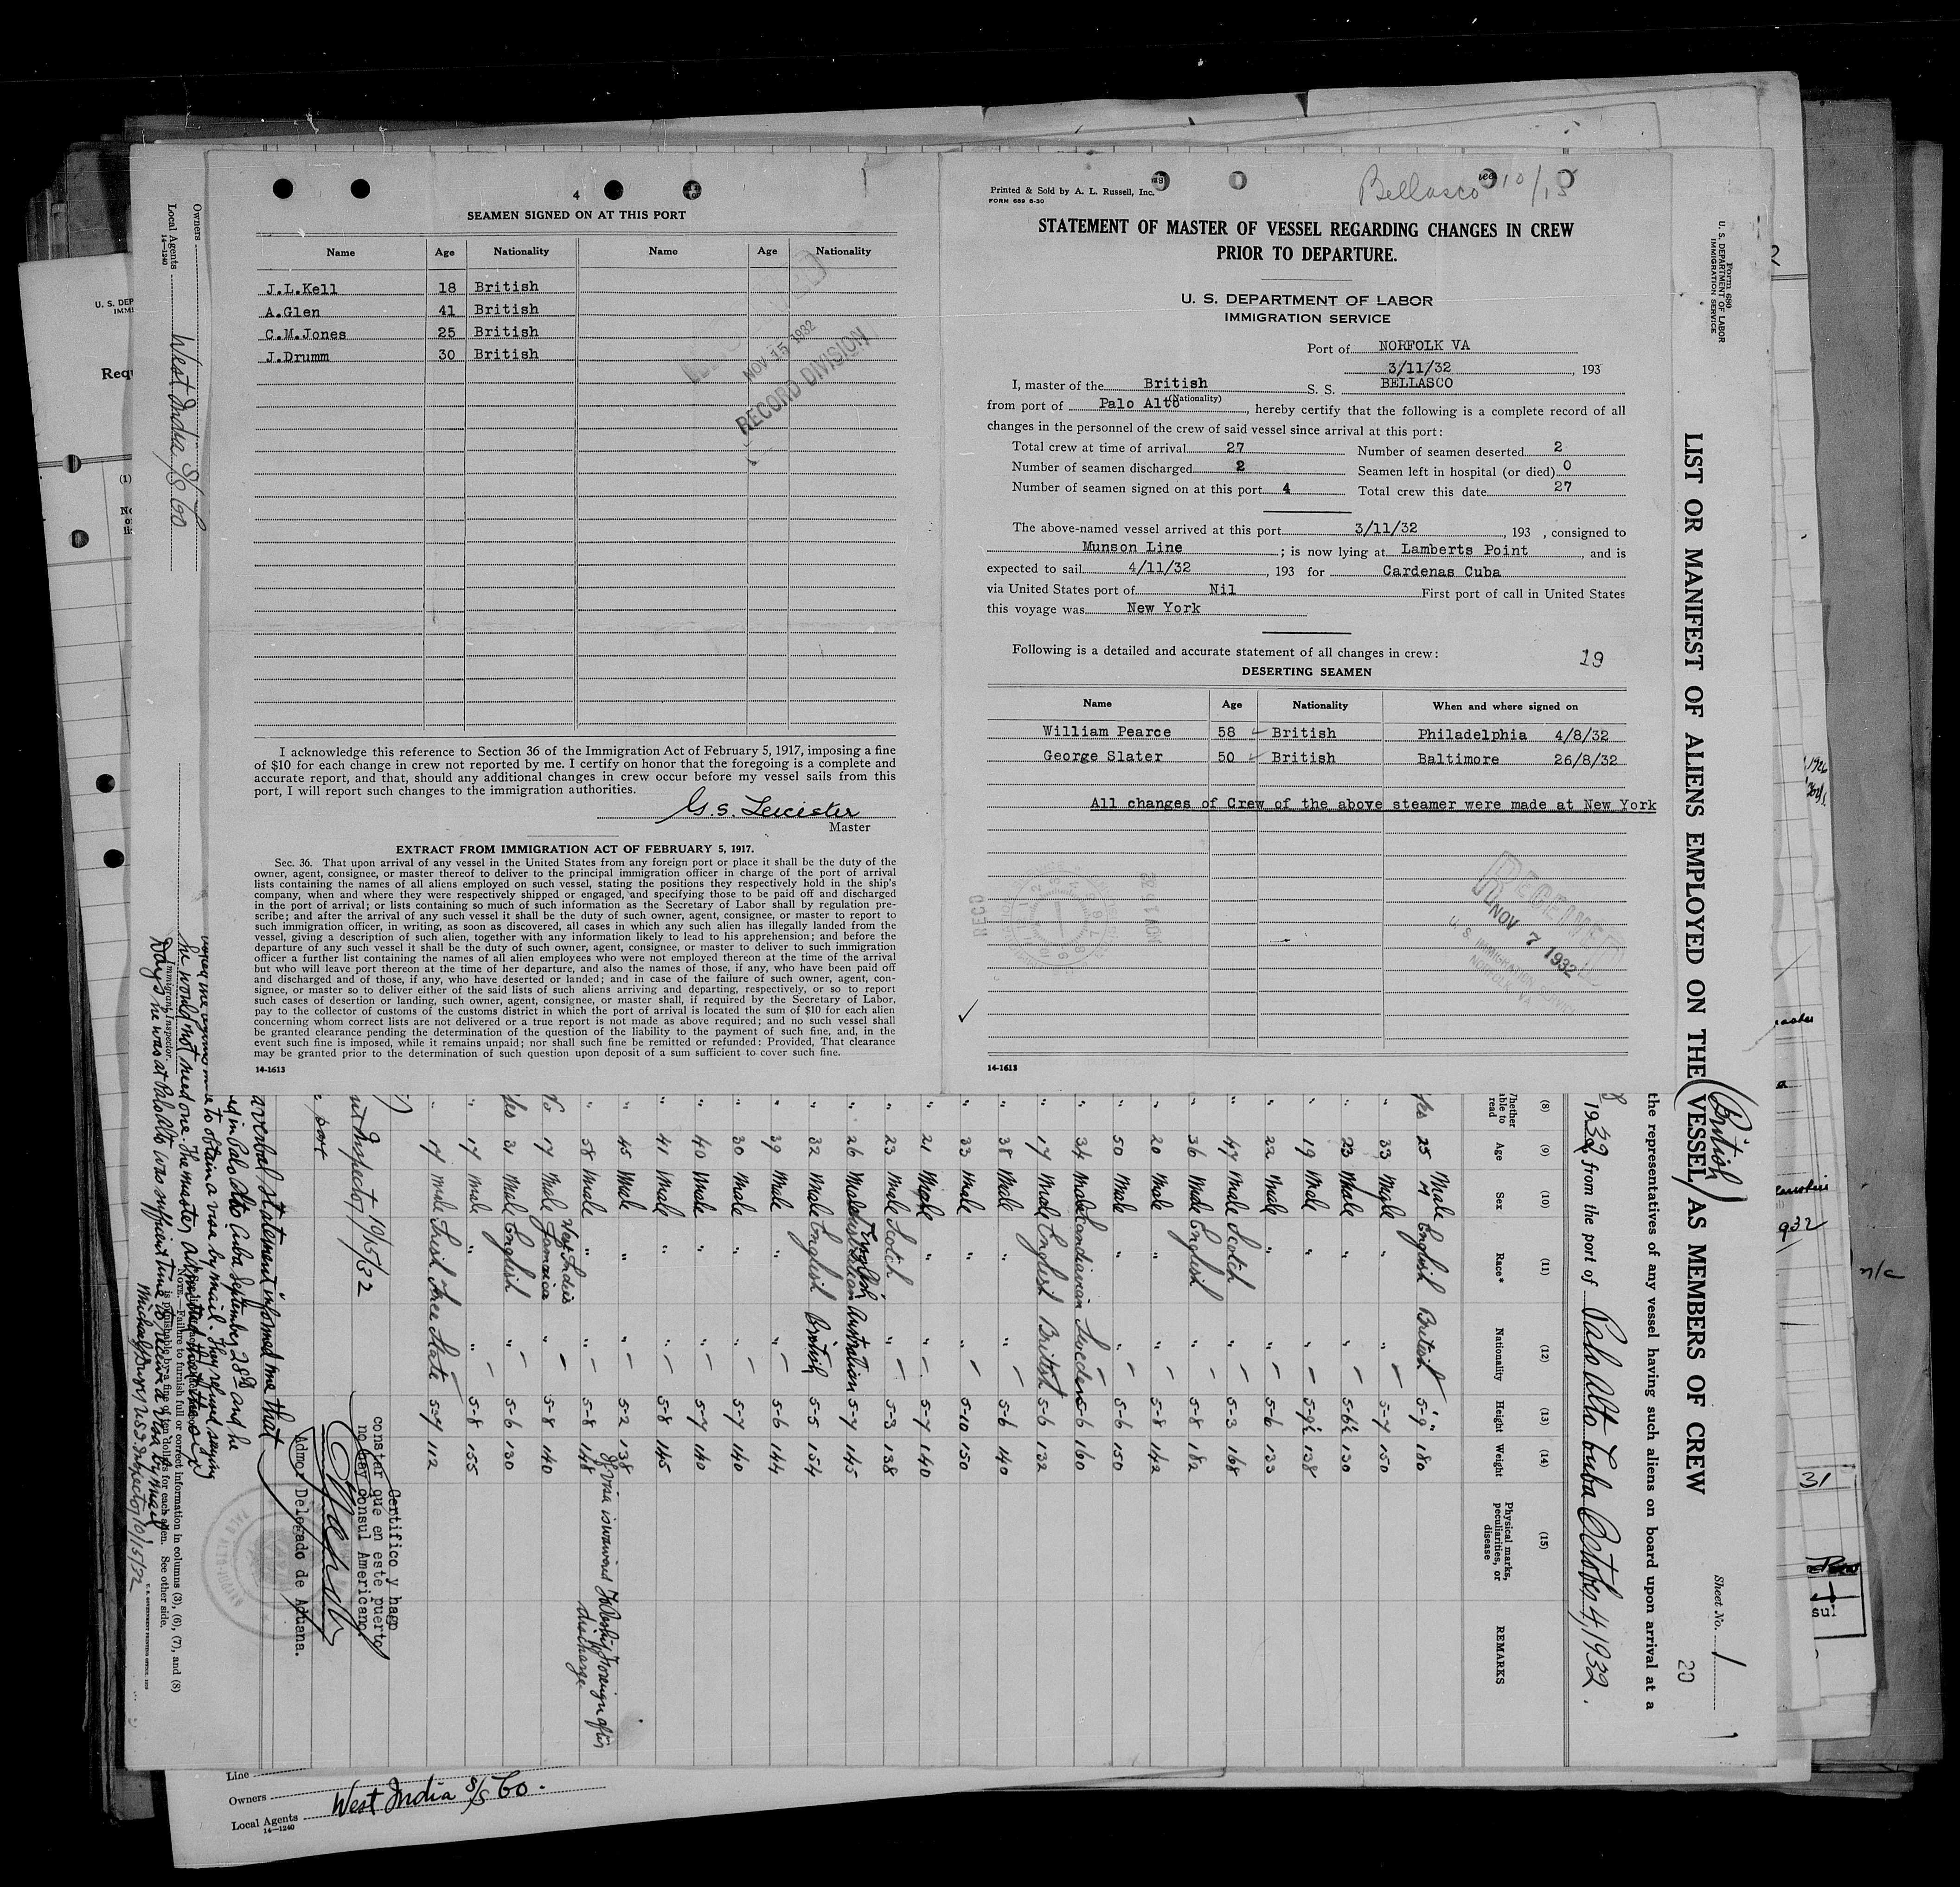 4
SEAMEN SIGNED ON AT THIS PORT
Name Age Nationality Name Age Nationality
J.L.Kell 18 British
A.Glen 41 British
C.M.Jones 25 British
J.Drumm 30 British
NOV 15 1932
RECORD DIVISION
I acknowledge this reference to Section 36 of the Immigration Act of February 5, 1917, imposing a fine
of $10 for each change in crew not reported by me. I certify on honor that the foregoing is a complete and
accurate report, and that, should any additional changes in crew occur before my vessel sails from this
port, I will report such changes to the immigration authorities.
G.S. Leicester
Master
EXTRACT FROM IMMIGRATION ACT OF FEBRUARY 5, 1917.
Sec. 36. That upon arrival of any vessel in the United States from any foreign port or place it shall be the duty of the
owner, agent, consignee, or master thereof to deliver to the principal immigration officer in charge of the port of arrival
lists containing the names of all aliens employed on such vessel, stating the positions they respectively hold in the ship's
company, when and where they were respectively shipped or engaged, and specifying those to be paid off and discharged
in the port of arrival; or lists containing so much of such information as the Secretary of Labor shall by regulation pre-
scribe; and after the arrival of any such vessel it shall be the duty of such owner, agent, consignee, or master to report to
such immigration officer, in writing, as soon as discovered, all cases in which any such alien has illegally landed from the
vessel, giving a description of such alien, together with any information likely to lead to his apprehension; and before the
departure of any such vessel it shall be the duty of such owner, agent, consignee, or master to deliver to such immigration
officer a further list containing the names of all alien employees who were not employed thereon at the time of the arrival
but who will leave port thereon at the time of her departure, and also the names of those, if any, who have been paid off
and discharged and of those, if any, who have deserted or landed; and in case of the failure of such owner, agent, con-
signee, or master so to deliver either of the said lists of such aliens arriving and departing, respectively, or so to report
such cases of desertion or landing, such owner, agent, consignee, or master shall, if required by the Secretary of Labor,
pay to the collector of customs of the customs district in which the port of arrival is located the sum of $10 for each alien
concerning whom correct lists are not delivered or a true report is not made as above required; and no such vessel shall
be granted clearance pending the determination of the question of the liability to the payment of such fine, and, in the
event such fine is imposed, while it remains unpaid; nor shall such fine be remitted or refunded: Provided, That clearance
may be granted prior to the determination of such question upon deposit of a sum sufficient to cover such fine.
14-1613
Printed & Sold by A. L. Russell, Inc.
FORM 689 6-30
Bellasco 10/15
STATEMENT OF MASTER OF VESSEL REGARDING CHANGES IN CREW
PRIOR TO DEPARTURE.
U. S. DEPARTMENT OF LABOR
IMMIGRATION SERVICE
Port of NORFOLK VA
3/11/32 , 193
I, master of the British S. S. BELLASCO
(Nationality)
from port of Palo Alto , hereby certify that the following is a complete record of all
changes in the personnel of the crew of said vessel since arrival at this port:
Total crew at time of arrival 27 Number of seamen deserted 2
Number of seamen discharged 2 Seamen left in hospital (or died) 0
Number of seamen signed on at this port 4 Total crew this date 27
The above-named vessel arrived at this port 3/11/32 , 193 , consigned to
Munson Line ; is now lying at Lamberts Point , and is
expected to sail 4/11/32 , 193 for Cardenas Cuba
via United States port of Nil First port of call in United States
this voyage was New York
Following is a detailed and accurate statement of all changes in crew: 19
DESERTING SEAMEN
Name Age Nationality When and where signed on
William Pearce 58 British Philadelphia 4/8/32
George Slater 50 British Baltimore 26/8/32
All changes of Crew of the above steamer were made at New York
RECD
RECEIVED
NOV 7 1932
U. S. IMMIGRATION SERVICE
NORFOLK VA
14-1613
Form 680
U. S. DEPARTMENT OF LABOR
IMMIGRATION SERVICE
LIST OR MANIFEST OF ALIENS EMPLOYED ON THE (British VESSEL) AS MEMBERS OF CREW
Sheet No. 1
20
the representatives of any vessel having such aliens on board upon arrival at a
1932, from the port of Palo Alto Cuba October 4, 1932.
(8) (9) (10) (11) (12) (13) (14) (15)
Whether able to read Age Sex Race* Nationality Height Weight Physical marks, peculiarities, or disease REMARKS
Yes 25 Male English British 5-9 180
" 33 Male " " 5-7 150
" 23 Male " " 5-6½ 130
" 19 Male " " 5-9½ 138
" 22 Male " " 5-6 133
" 47 Male Scotch " 5-3 168
" 36 Male English " 5-8 182
" 20 Male " " 5-8 142
" 50 Male " " 5-6 150
" 34 Male Scandinavian Sweden 5-6 160
" 17 Male English British 5-6 132
" 38 Male " " 5-6 140
" 33 Male " " 5-10 150
" 21 Male " " 5-7 140
" 23 Male Scotch " 5-3 138
" 26 Male English Australian Australian 5-7 145
" 32 Male English British 5-5 154
" 39 Male " " 5-6 144
" 30 Male " " 5-7 140
" 40 Male " " 5-7 140
" 41 Male " " 5-8 145
" 45 Male " " 5-2 138
" 58 Male " " 5-8 148
Visa is waived To Reship Foreign after discharge
17 Male West Indies Jamaica " 5-8 140
Yes 31 Male English " 5-6 130
" 17 Male " " 5-8 155
" 17 Male Irish Free State 5-7 112
Inspector 10/15/32
port
Certifico y hago
constar que en este puerto
no hay consul Americano
Admor Delegado de Aduana.
a verbal statement informed me that
in Palo Alto Cuba September 28th and he
to obtain a visa by mail. They refused saying
he would not need one. The master admitted that the
Days he was at Palo Alto was sufficient time to receive a visa by mail
Immigrant Inspector.
NOTE.—Failure to furnish full or correct information in columns (3), (6), (7), and (8)
is punishable by a fine of ten dollars for each alien. See other side.
U.S. Inspector 10/15/32
Owners
Local Agents West India S/S Co
14—1240
Line
Owners
Local Agents West India S/S Co.
14—1240
U. S. DEP
IMMI
Requ
(1)
n/c
31
sul